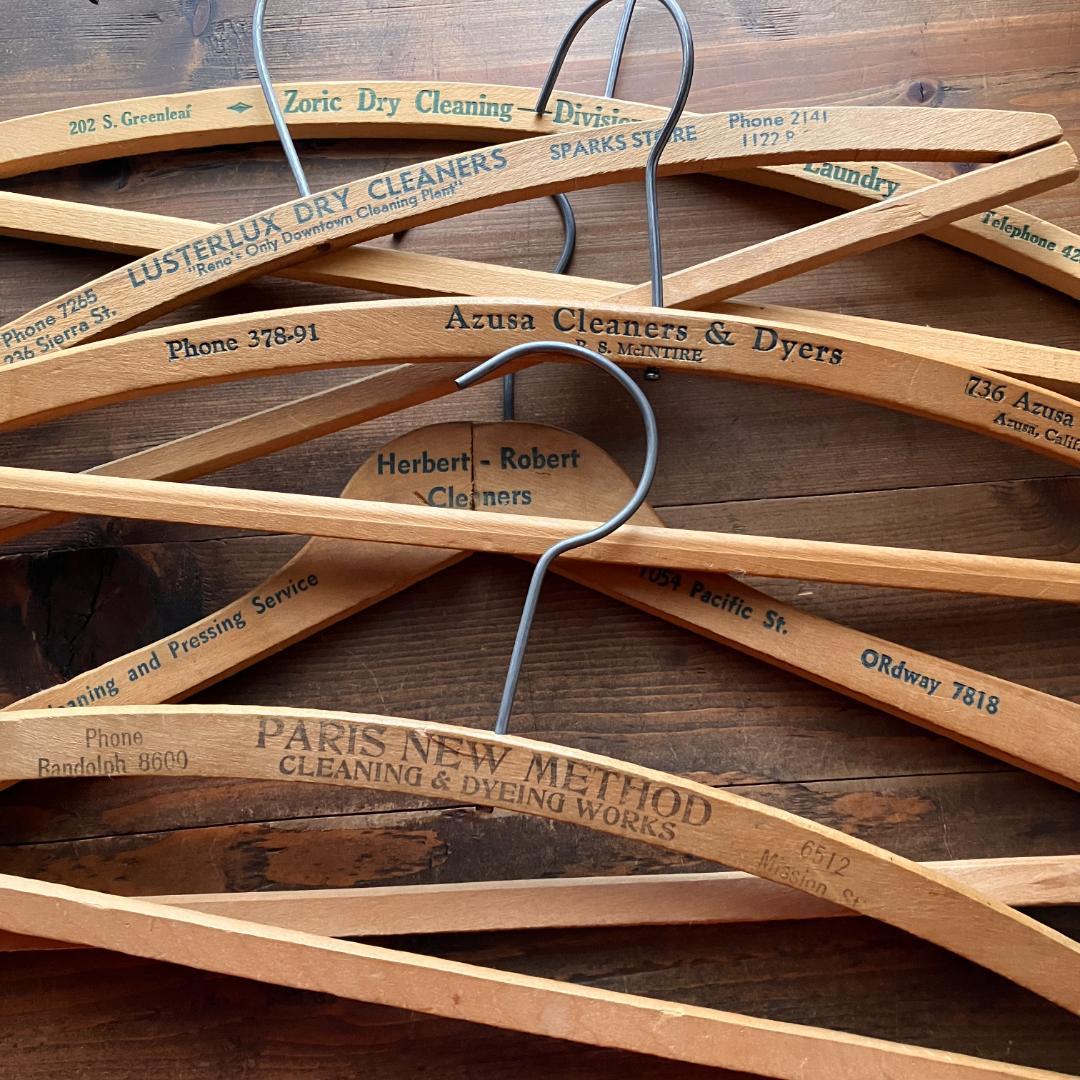 202 S. Greenleaf
Zoric Dry Cleaning — Division
Laundry
Telephone 42
Phone 7265
236 Sierra St.
LUSTERLUX DRY CLEANERS
"Reno's Only Downtown Cleaning Plant"
SPARKS STORE
Phone 2141
1122
Phone 378-91
Azusa Cleaners & Dyers
R. S. McINTIRE
736 Azusa
Azusa, Calif
Herbert - Robert
Cleaners
and Pressing Service
1054 Pacific St.
ORdway 7818
Phone
Randolph 8600
PARIS NEW METHOD
CLEANING & DYEING WORKS
6512
Mission St